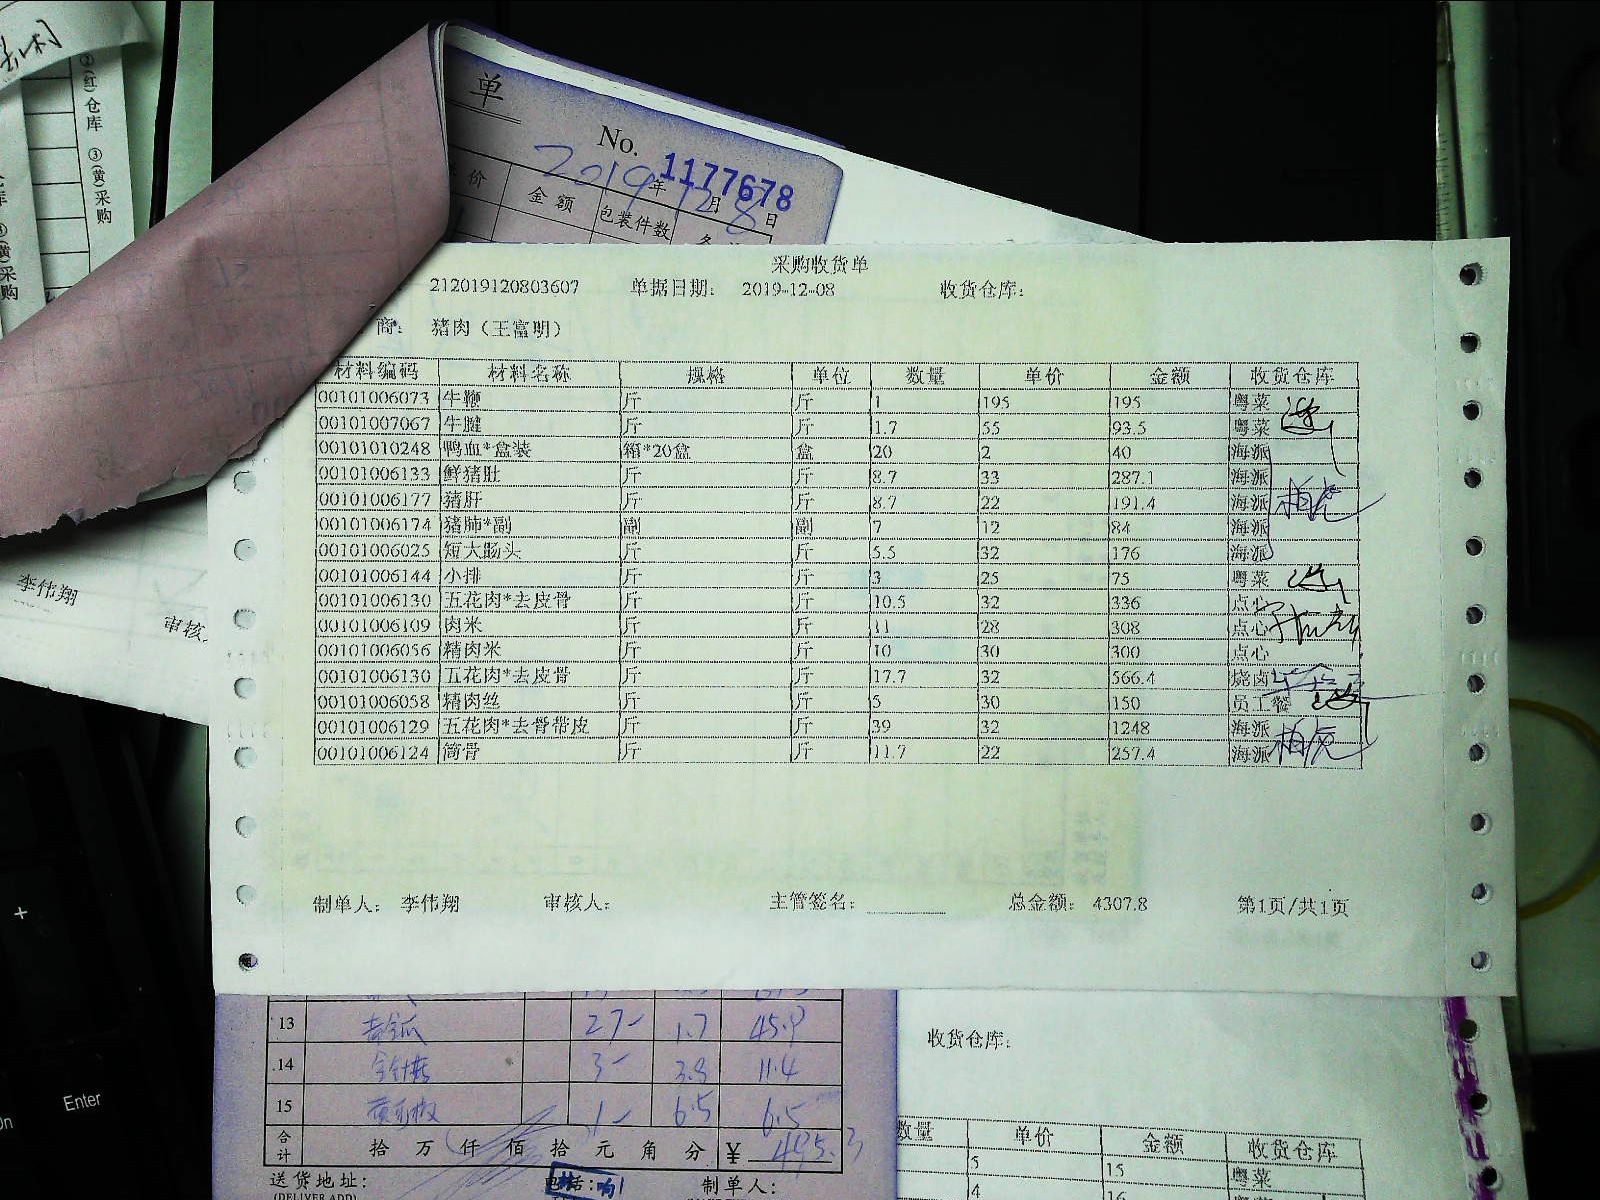 ②(红)仓库 ③(黄)采购
单
No. 1177678
2019年12月8日
价 金额 包装件数
采购收货单
212019120803607 单据日期： 2019-12-08 收货仓库：
商： 猪肉（王富明）
材料编码 材料名称 规格 单位 数量 单价 金额 收货仓库
00101006073 牛鞭 斤 斤 1 195 195 粤菜
00101007067 牛腱 斤 斤 1.7 55 93.5 粤菜
00101010248 鸭血*盒装 箱*20盒 盒 20 2 40 海派
00101006133 鲜猪肚 斤 斤 8.7 33 287.1 海派
00101006177 猪肝 斤 斤 8.7 22 191.4 海派
00101006174 猪肺*副 副 副 7 12 84 海派
00101006025 短大肠头 斤 斤 5.5 32 176 海派
00101006144 小排 斤 斤 3 25 75 粤菜
00101006130 五花肉*去皮骨 斤 斤 10.5 32 336 点心
00101006109 肉米 斤 斤 11 28 308 点心
00101006056 精肉米 斤 斤 10 30 300 点心
00101006130 五花肉*去皮骨 斤 斤 17.7 32 566.4 烧卤
00101006058 精肉丝 斤 斤 5 30 150 员工餐
00101006129 五花肉*去骨带皮 斤 斤 39 32 1248 海派
00101006124 筒骨 斤 斤 11.7 22 257.4 海派
制单人： 李伟翔 审核人： 主管签名： 总金额： 4307.8 第1页/共1页
李伟翔 审核
13 27 1.7 45.9
14 3 3.8 11.4
15 1 6.5 6.5
合计 拾 万 仟 佰 拾 元 角 分 ¥ 495.3
送货地址： 电话： 制单人：
(DELIVER ADD)
收货仓库：
数量 单价 金额 收货仓库
5 15 粤菜
4 16
+
Enter